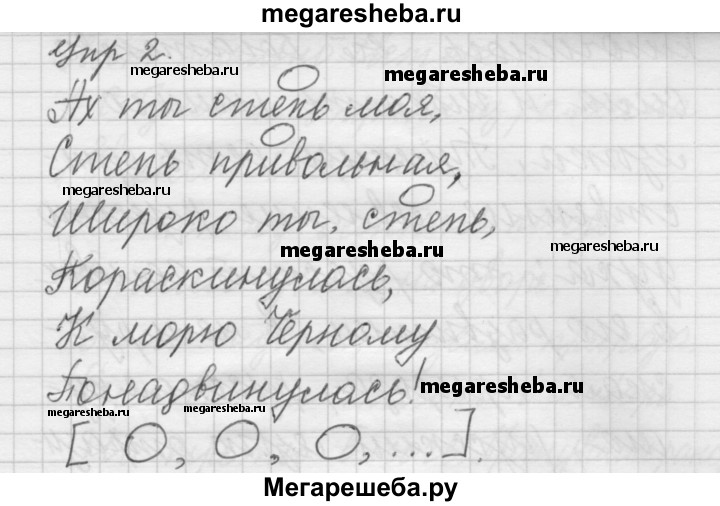 megaresheba.ru
Упр 2.
megaresheba.ru
megaresheba.ru
Ах ты степь моя,
Степь привольная,
megaresheba.ru
Широко ты, степь,
megaresheba.ru
megaresheba.ru
Пораскинулась,
К морю Чёрному
Понадвинулась!
megaresheba.ru
megaresheba.ru
megaresheba.ru
[ О, О, О, ...].
Мегарешеба.ру